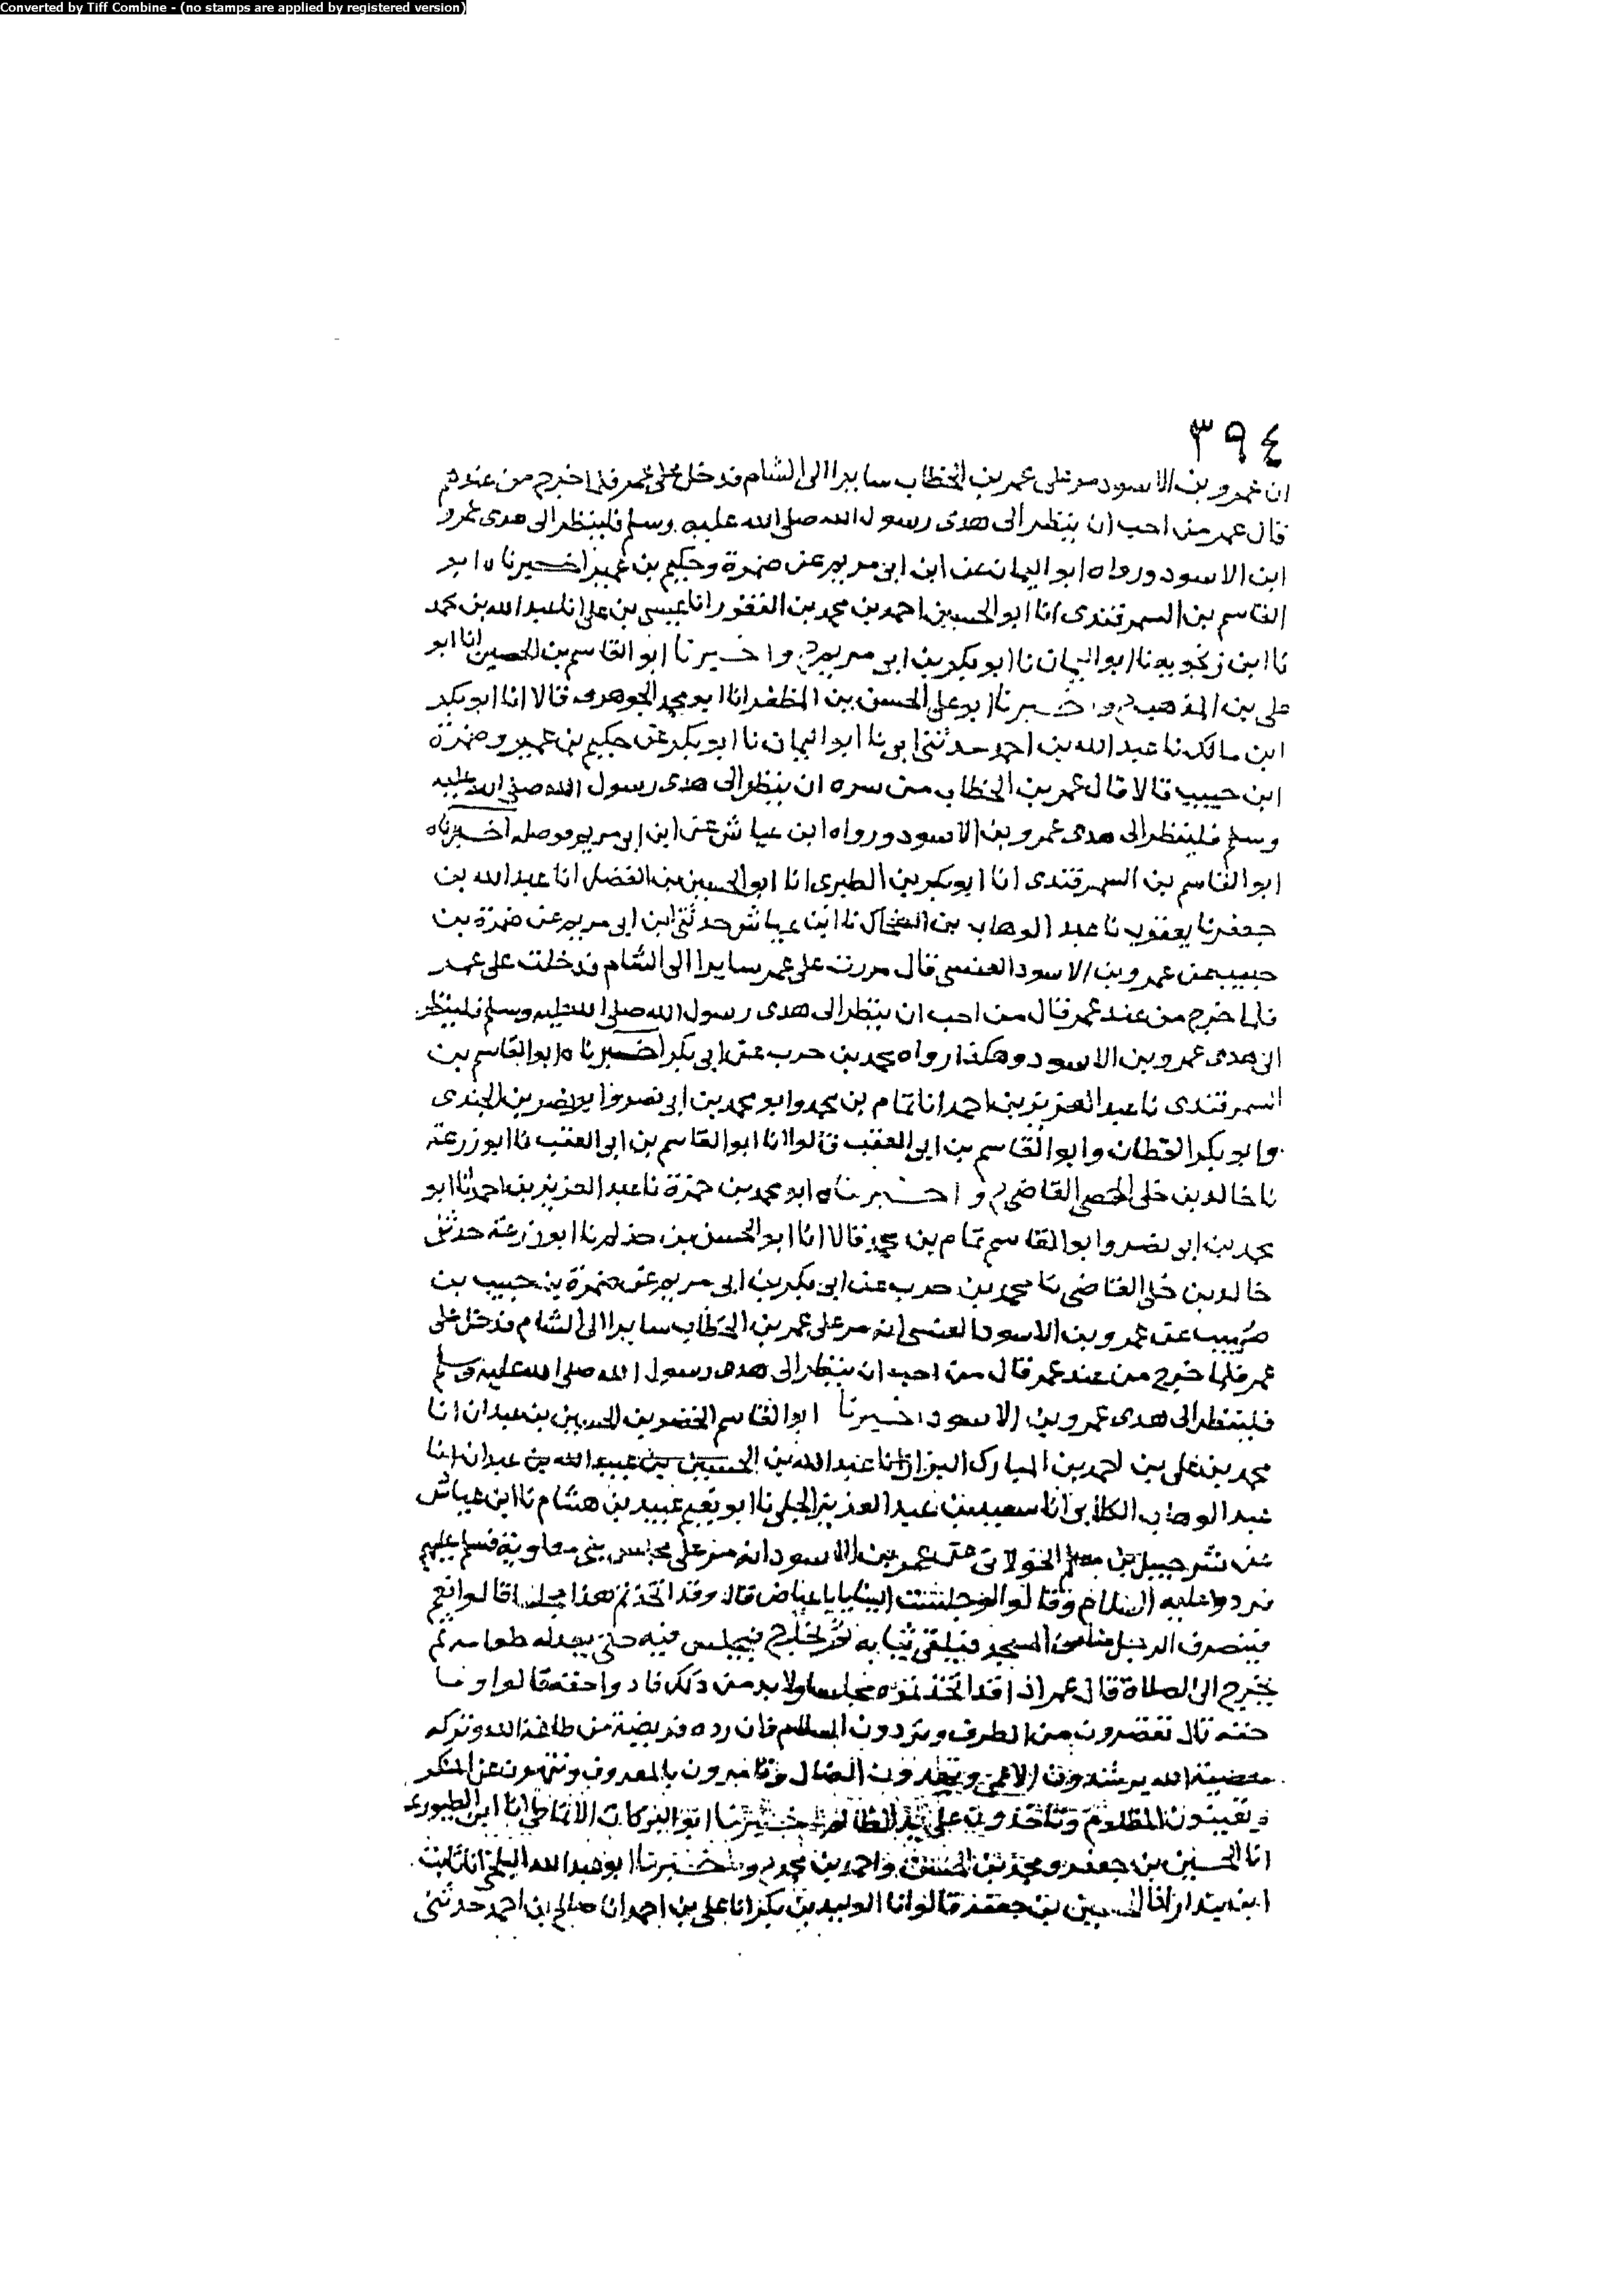 Converted by Tiff Combine - (no stamps are applied by registered version)
٣٩٤
ان عمرو بن الاسود مر على عمر بن الخطاب سايرا الى الشام فدخل على عمر فلما خرج من عنده
قال عمر من احب ان ينظر الى هدى رسول الله صلى الله عليه وسلم فلينظر الى هدى عمرو
ابن الاسود ورواه ابو اليمان عن ابن ابى مريم عن ضمرة وحكيم بن عمير اخبرناه ابو
القاسم بن السمرقندى انا ابو الحسين احمد بن محمد بن النقور انا عيسى بن على انا عبد الله بن محمد
نا ابن زنجويه نا ابو اليمان نا ابو بكر بن ابى مريم ح واخبرنا ابو القاسم بن الحصين انا ابو
على بن المذهب ح واخبرنا ابو على الحسن بن المظفر انا ابو محمد الجوهرى قالا انا ابو بكر
ابن مالك نا عبد الله بن احمد حدثنى ابى نا ابو اليمان نا ابو بكر عن حكيم بن عمير وضمرة
ابن حبيب قالا قال عمر بن الخطاب من سره ان ينظر الى هدى رسول الله صلى الله عليه
وسلم فلينظر الى هدى عمرو بن الاسود ورواه ابن عياش عن ابن ابى مريم فوصله اخبرناه
ابو القاسم بن السمرقندى انا ابو بكر بن الطبرى انا ابو الحسين بن الفضل انا عبد الله بن
جعفر نا يعقوب نا عبد الوهاب بن الضحاك نا ابن عياش حدثنى ابن ابى مريم عن ضمرة بن
حبيب عن عمرو بن الاسود العنسى قال مررت على عمر سايرا الى الشام فدخلت على عمر
فلما خرج من عند عمر قال من احب ان ينظر الى هدى رسول الله صلى الله عليه وسلم فلينظر
الى هدى عمرو بن الاسود وهكذا رواه محمد بن حرب عن ابى بكر اخبرناه ابو القاسم بن
السمرقندى نا عبد العزيز بن احمد انا تمام بن محمد وابو محمد بن ابى نصر وابو نصر بن الجندى
وابو بكر القطان وابو القاسم بن ابى العقب قالوا انا ابو القاسم بن ابى العقب نا ابو زرعة
نا خالد بن خلى الحمصى القاضى ح واخبرناه ابو محمد بن حمزة نا عبد العزيز بن احمد انا ابو
محمد بن ابى نصر وابو القاسم تمام بن محمد قالا انا ابو الحسن بن حذلم نا ابو زرعة حدثنى
خالد بن خلى القاضى نا محمد بن حرب عن ابى بكر بن ابى مريم عن ضمرة بن حبيب بن
صهيب عن عمرو بن الاسود العنسى انه مر على عمر بن الخطاب سايرا الى الشام فدخل على
عمر فلما خرج من عند عمر قال من احب ان ينظر الى هدى رسول الله صلى الله عليه وسلم
فلينظر الى هدى عمرو بن الاسود اخبرنا ابو القاسم الخضر بن الحسين بن عبدان انا
محمد بن على بن احمد بن المبارك البزاز انا عبد الله بن الحسين بن عبيد الله بن عبدان انا
عبد الوهاب الكلابى انا سعيد بن عبد العزيز الحلبى نا ابو نعيم عبيد بن هشام نا ابن عياش
عن شرحبيل بن مسلم الخولانى عن عمر بن الاسود انه مر على مجلس بنى معاوية فسلم عليهم
فردوا عليه السلام وقالوا لو جلست الينا يا ابا عياض قال وقد اتخذتم هذا مجلسا قالوا نعم
ينصرف الرجل منا من المسجد فيلقى ثيابه ثم يخرج فيجلس فيه حتى يجد له طعامه ثم
يخرج الى الصلاة قال عمر اذا قد اتخذتموه مجلسا ولا بد من ذلك فادوا حقه قالوا وما
حقه قال تغضون من الطرف وتردون السلام فان رده فريضة من طاعة الله وتركه
معصية الله يرشدون الاعمى ويهدون الضال وتامرون بالمعروف وتنهون عن المنكر
وتعينون المظلوم وتاخذون على يد الظالم اخبرنا ابو البركات الانماطى انا ابن الطيورى
انا الحسين بن جعفر ومحمد بن الحسن واحمد بن محمد ح واخبرنا ابو عبد الله البلخى انا ثابت
ابن بندار انا الحسين بن جعفر قالوا انا الوليد بن بكر انا على بن احمد انا صالح بن احمد حدثنى